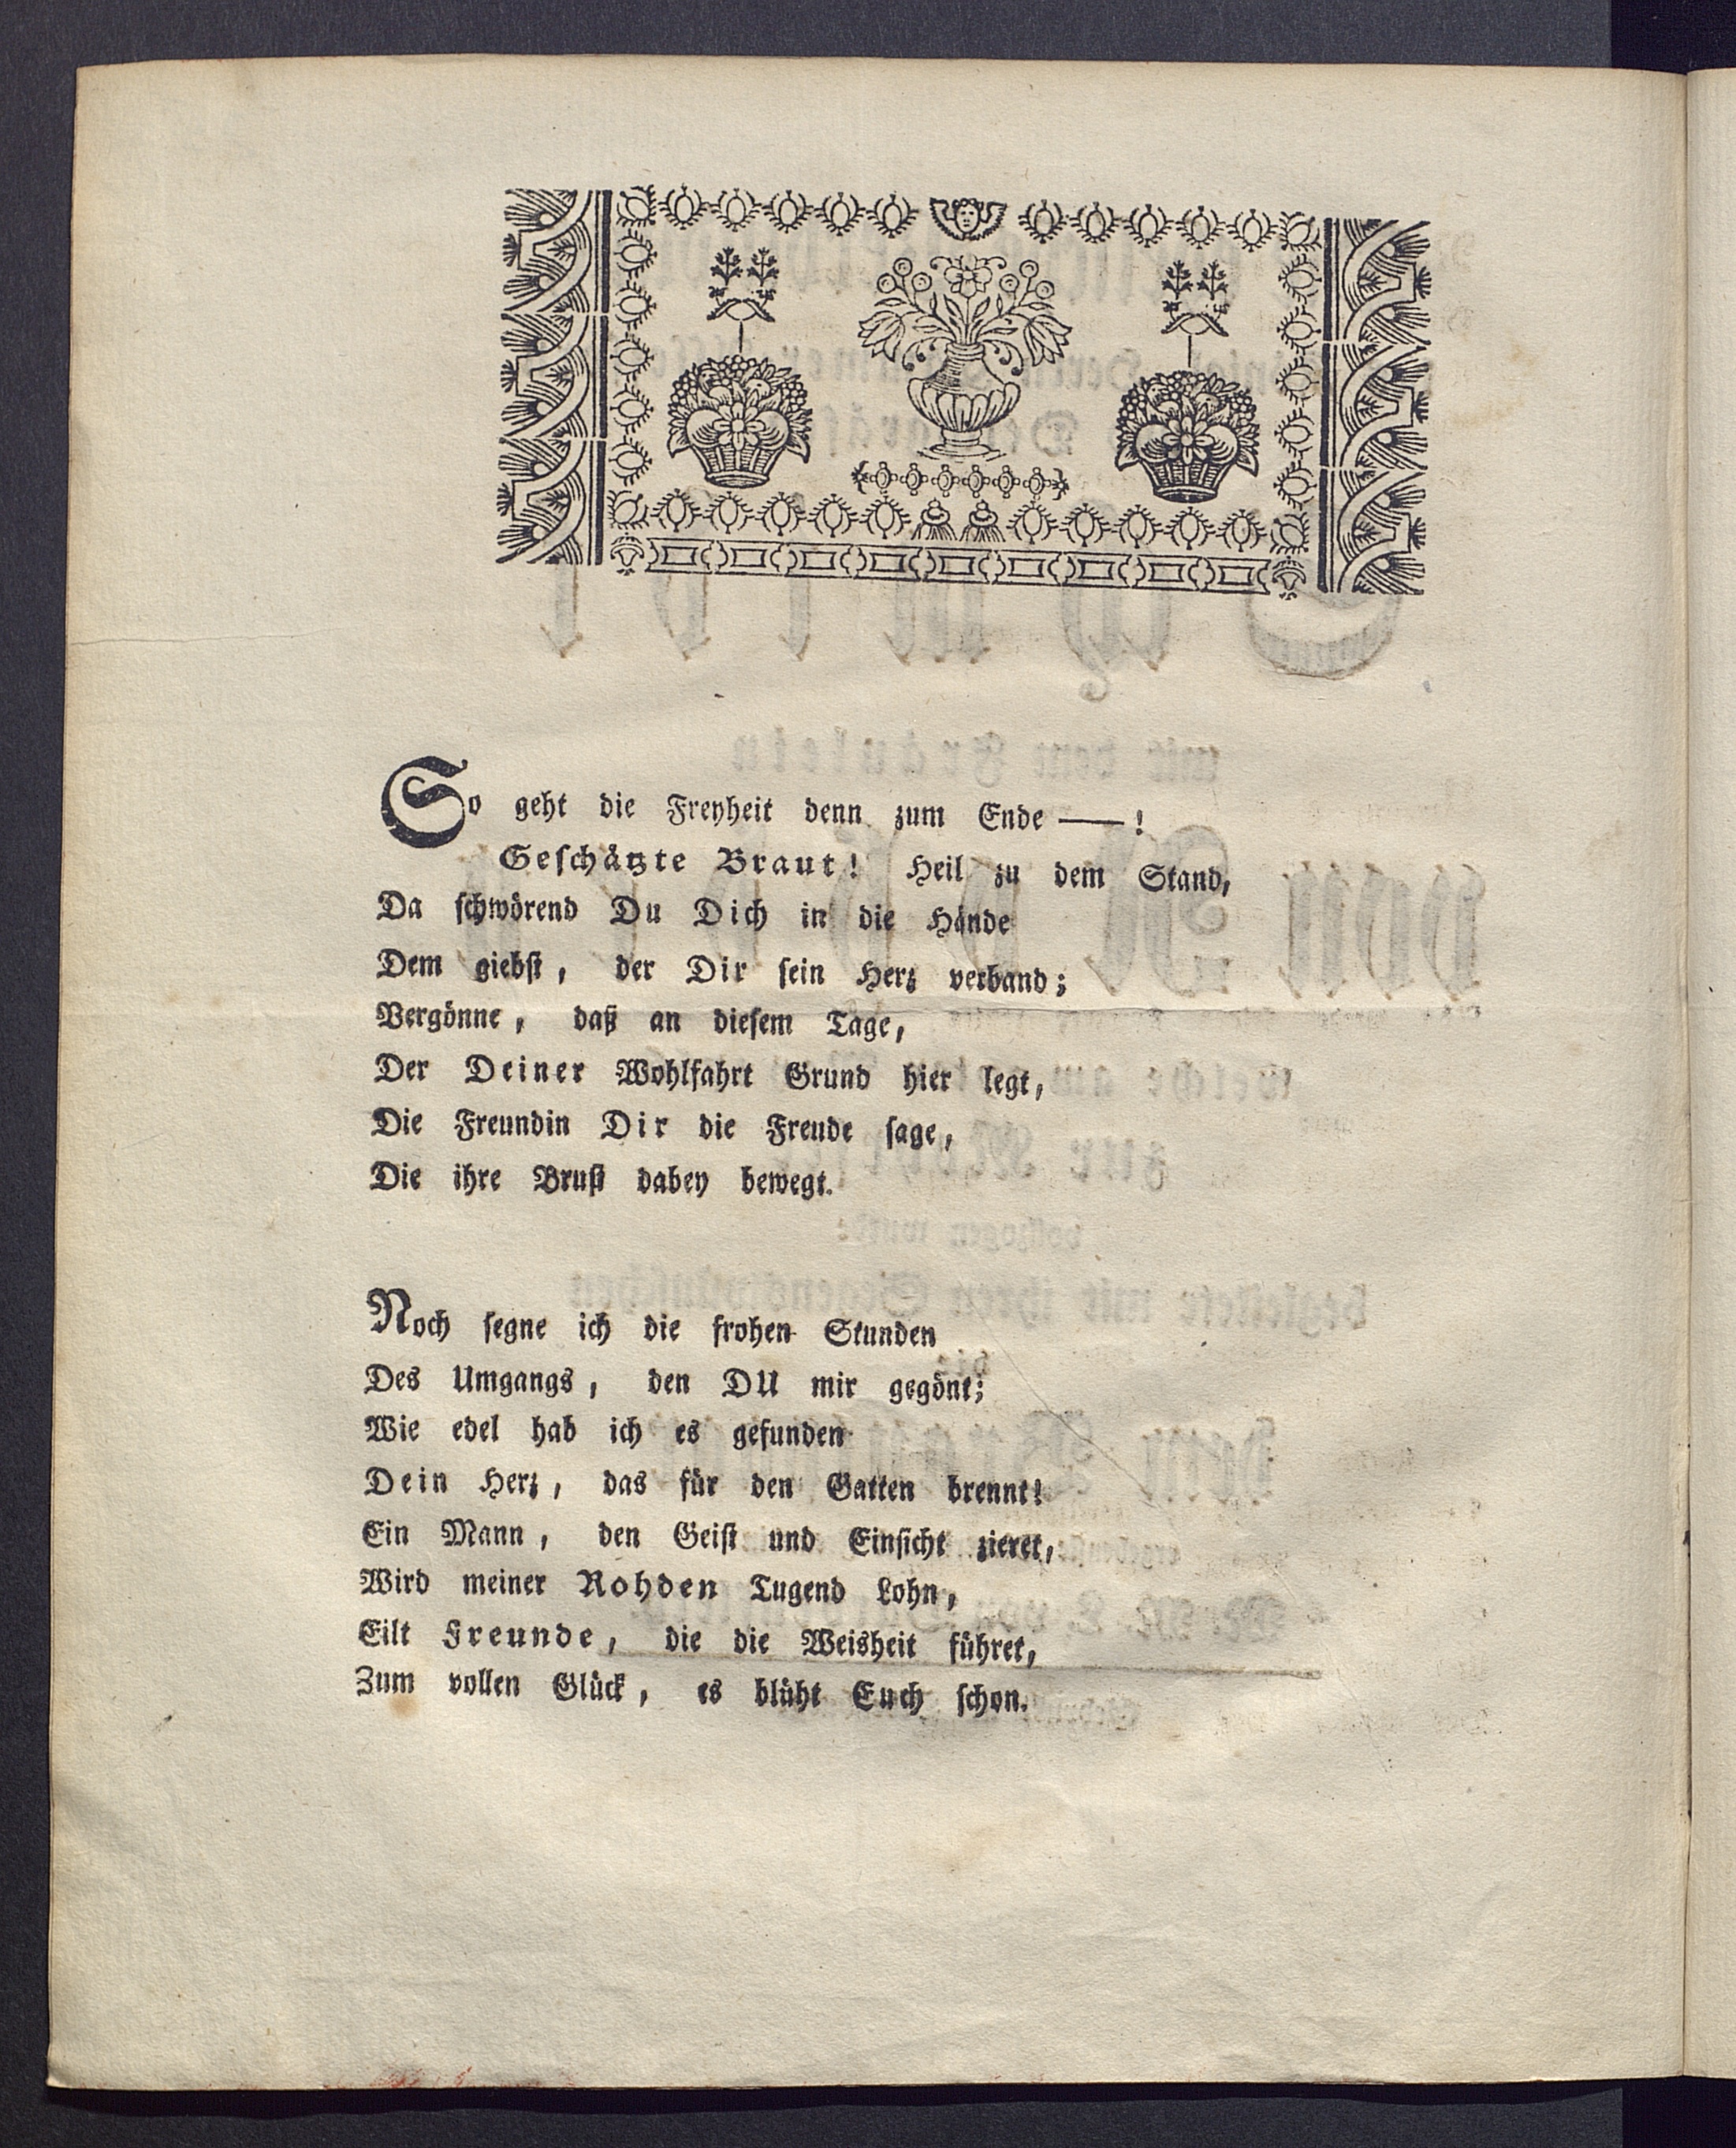 So geht die Freyheit denn zum Ende —— !
Geschätzte Braut! Heil zu dem Stand,
Da schwörend Du Dich in die Hände
Dem giebst, der Dir sein Herz verband;
Vergönne, daß an diesem Tage,
Der Deiner Wohlfahrt Grund hier legt,
Die Freundin Dir die Freude sage,
Die ihre Brust dabey bewegt.
Noch segne ich die frohen Stunden
Des Umgangs, den DU mir gegönt;
Wie edel hab ich es gefunden
Dein Herz, das für den Gatten brennt!
Ein Mann, den Geist und Einsicht zieret,
Wird meiner Rohden Tugend Lohn,
Eilt Freunde, die die Weisheit führet,
Zum vollen Glück, es blüht Euch schon.